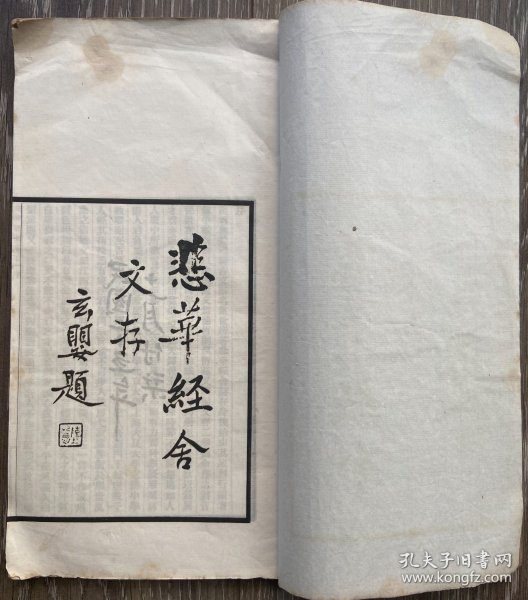 悲華経舍
文存
玄嬰題
孔夫子旧书网
www.kongfz.com